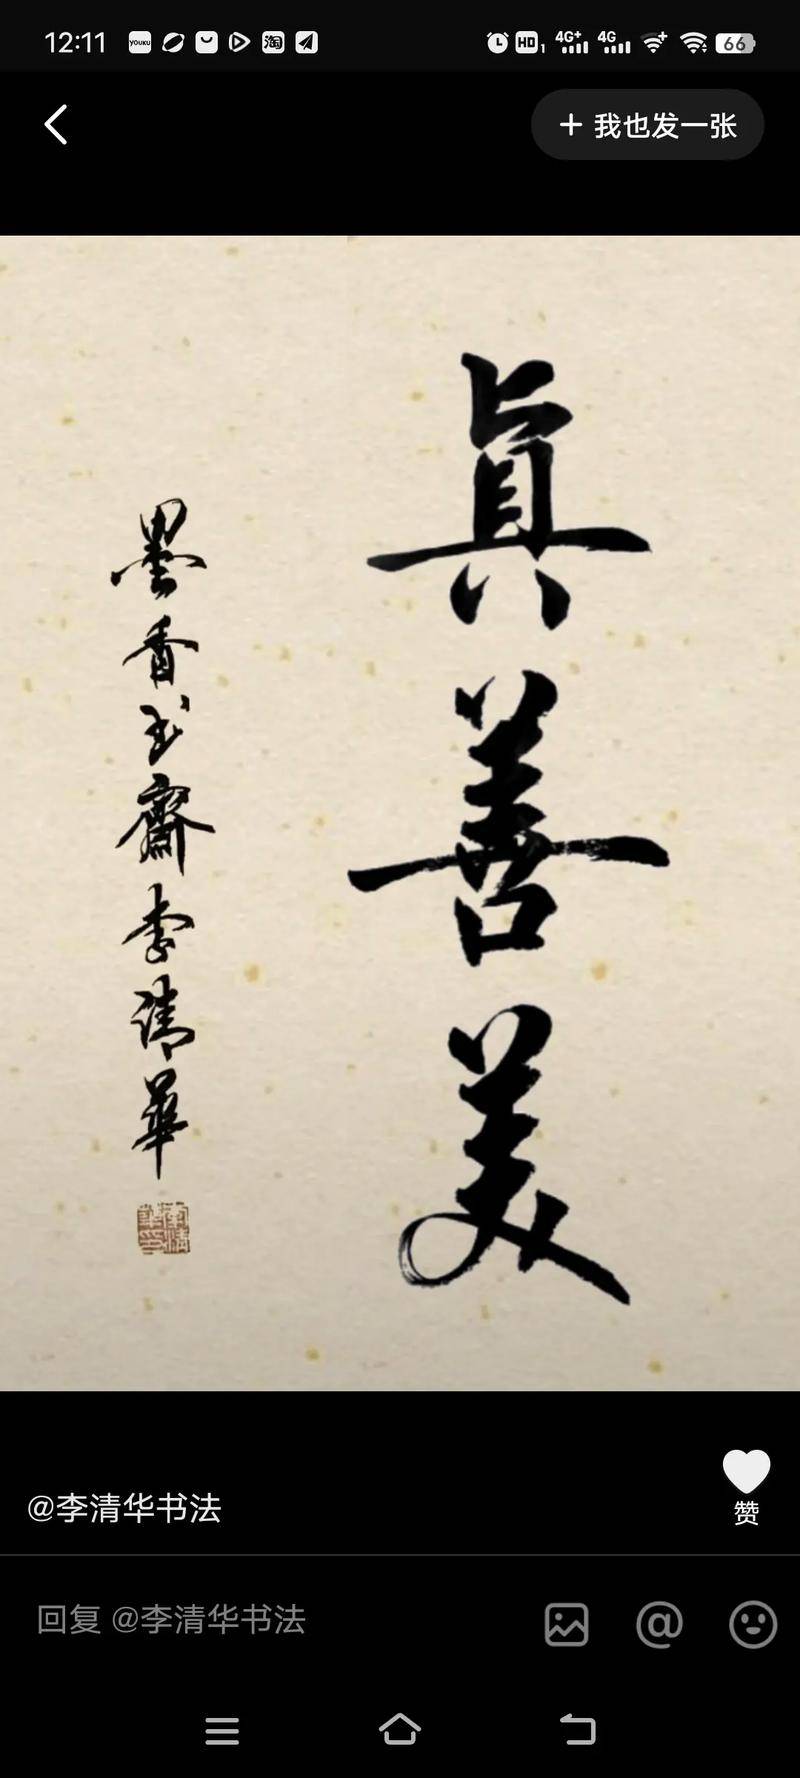 12:11
YOUKU
淘
HD 1
4G+
4G
66
+ 我也发一张
眞善美
墨香书斋李清華
@李清华书法
赞
回复 @李清华书法